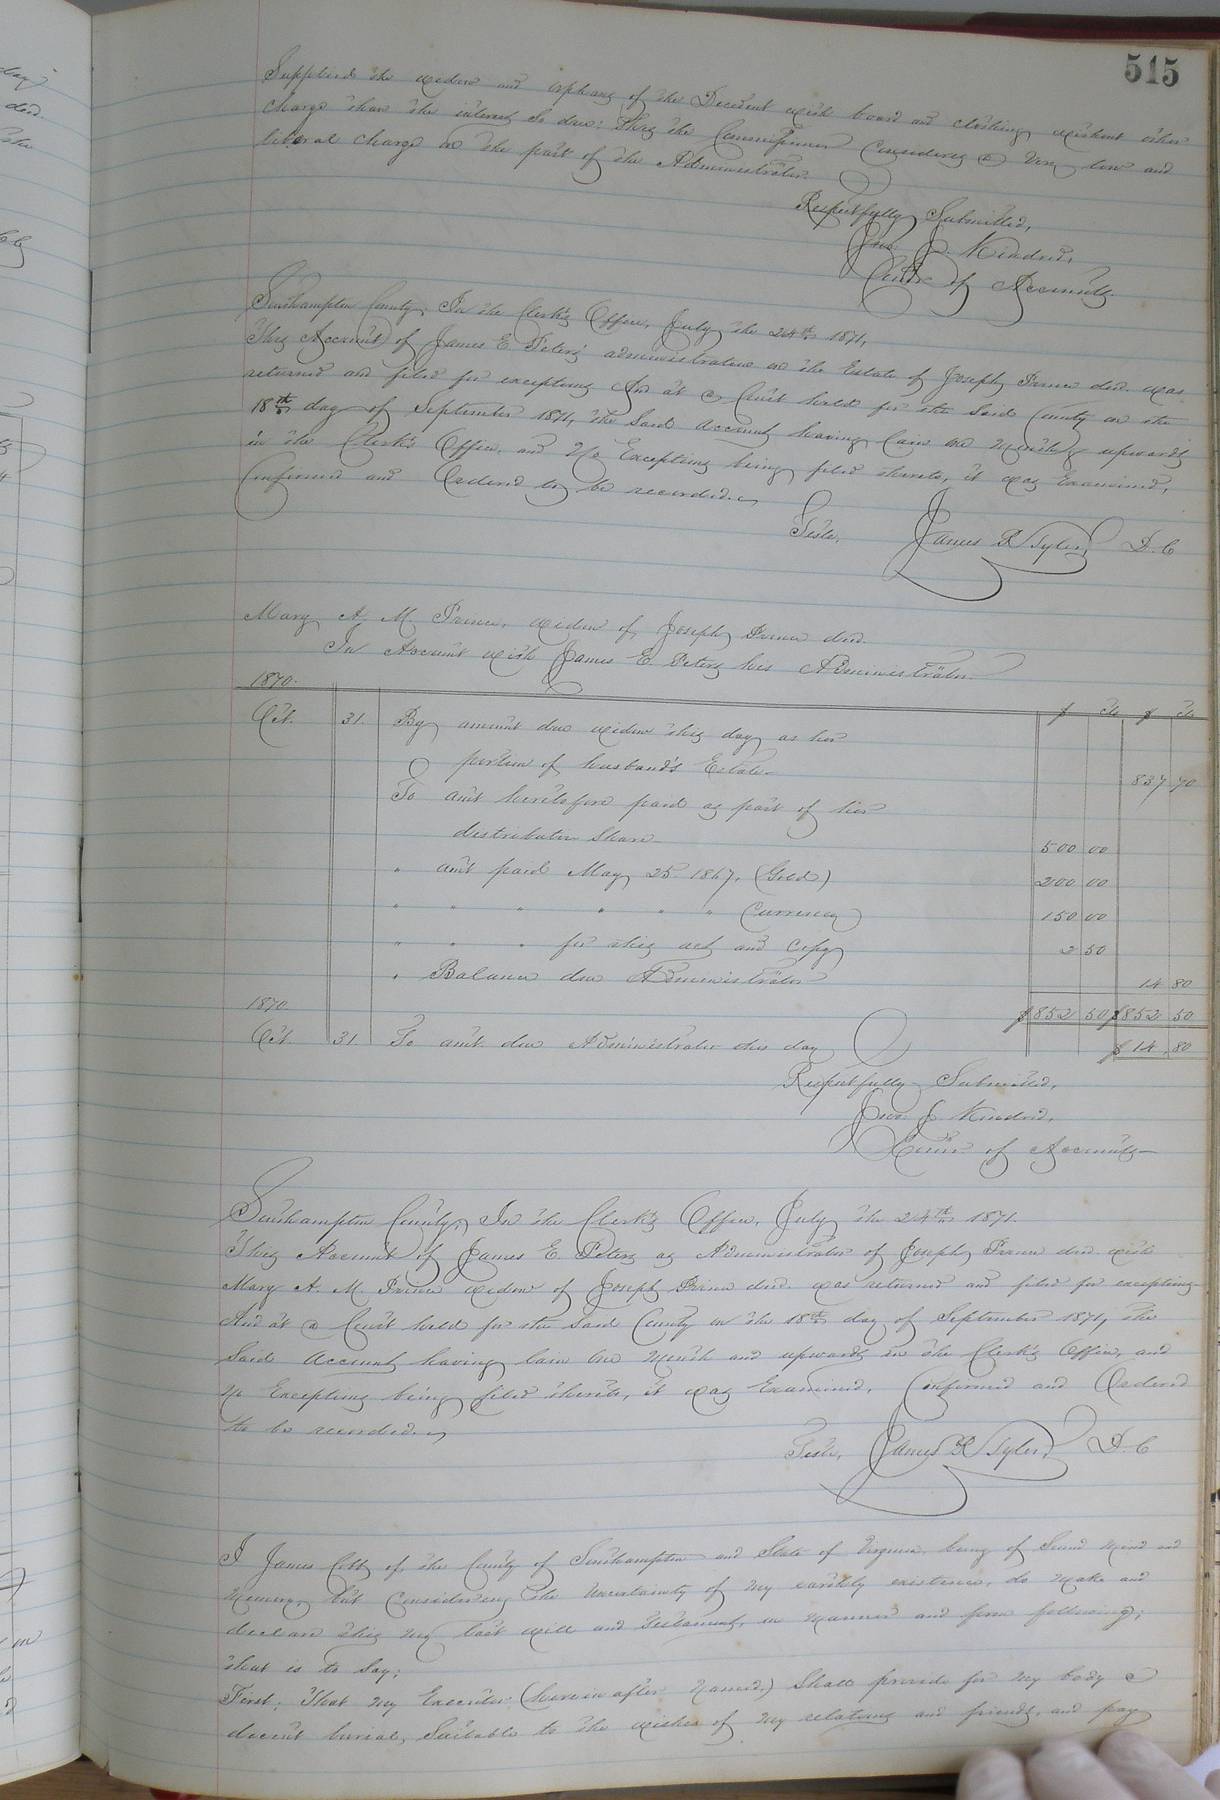 515
Supplied the widow and orphans of the Decedent with board and clothing without other
charge than the interest so due: This the Commissioner considers a very low and
liberal charge on the part of the Administrator.
Respectfully Submitted,
Jno. J. Kindred,
Comr of Accounts.
Southampton County, In the Clerk's Office, July the 24th 1871,
This Account of James E. Peters' administration on the Estate of Joseph Prince decd. was
returned and filed for exceptions And at a Court held for the said County on the
18th day of September 1871, the Said account having lain one month & upwards
in the Clerk's Office, and No Exceptions being filed thereto, it was Examined,
Confirmed and Ordered to be recorded.
Teste, James R Tyler, D. C
Mary A. M. Prince, widow of Joseph Prince decd.
In Account with James E. Peters his Administrator.
1870. $ cts $ cts
Oct. 31. By amount due widow this day as her
portion of husband's Estate 837 70
To amt heretofore paid as part of her
distributive Share 500 00
" amt paid May 25. 1867, (Gold) 200 00
" " " " " " (Currency) 150 00
" " " for this act and Copy 2 50
" Balance due Administrator 14 80
1870 $852 50 $852 50
Oct. 31. To amt due Administrator this day $14.80
Respectfully Submitted,
Jno. J. Kindred,
Comr of Accounts
Southampton County, In the Clerk's Office, July the 24th 1871.
This Account of James E Peters as Administrator of Joseph Prince decd with
Mary A. M. Prince widow of Joseph Prince decd. was returned and filed for exceptions
And at a Court held for the said County on the 18th day of September 1871, the
Said account having lain one month and upwards in the Clerk's Office, and
No Exceptions being filed thereto, it was Examined, Confirmed and Ordered
to be recorded.
Teste, James R Tyler, D. C
I James Cobb of the County of Southampton and State of Virginia being of Sound mind and
memory, but Considering the uncertainty of my earthly existence, do make and
declare this my last will and testament, in manner and form following;
that is to Say:
First; That my Executor (herein after named) Shall provide for my body a
decent burial, Suitable to the wishes of my relations and friends, and pay